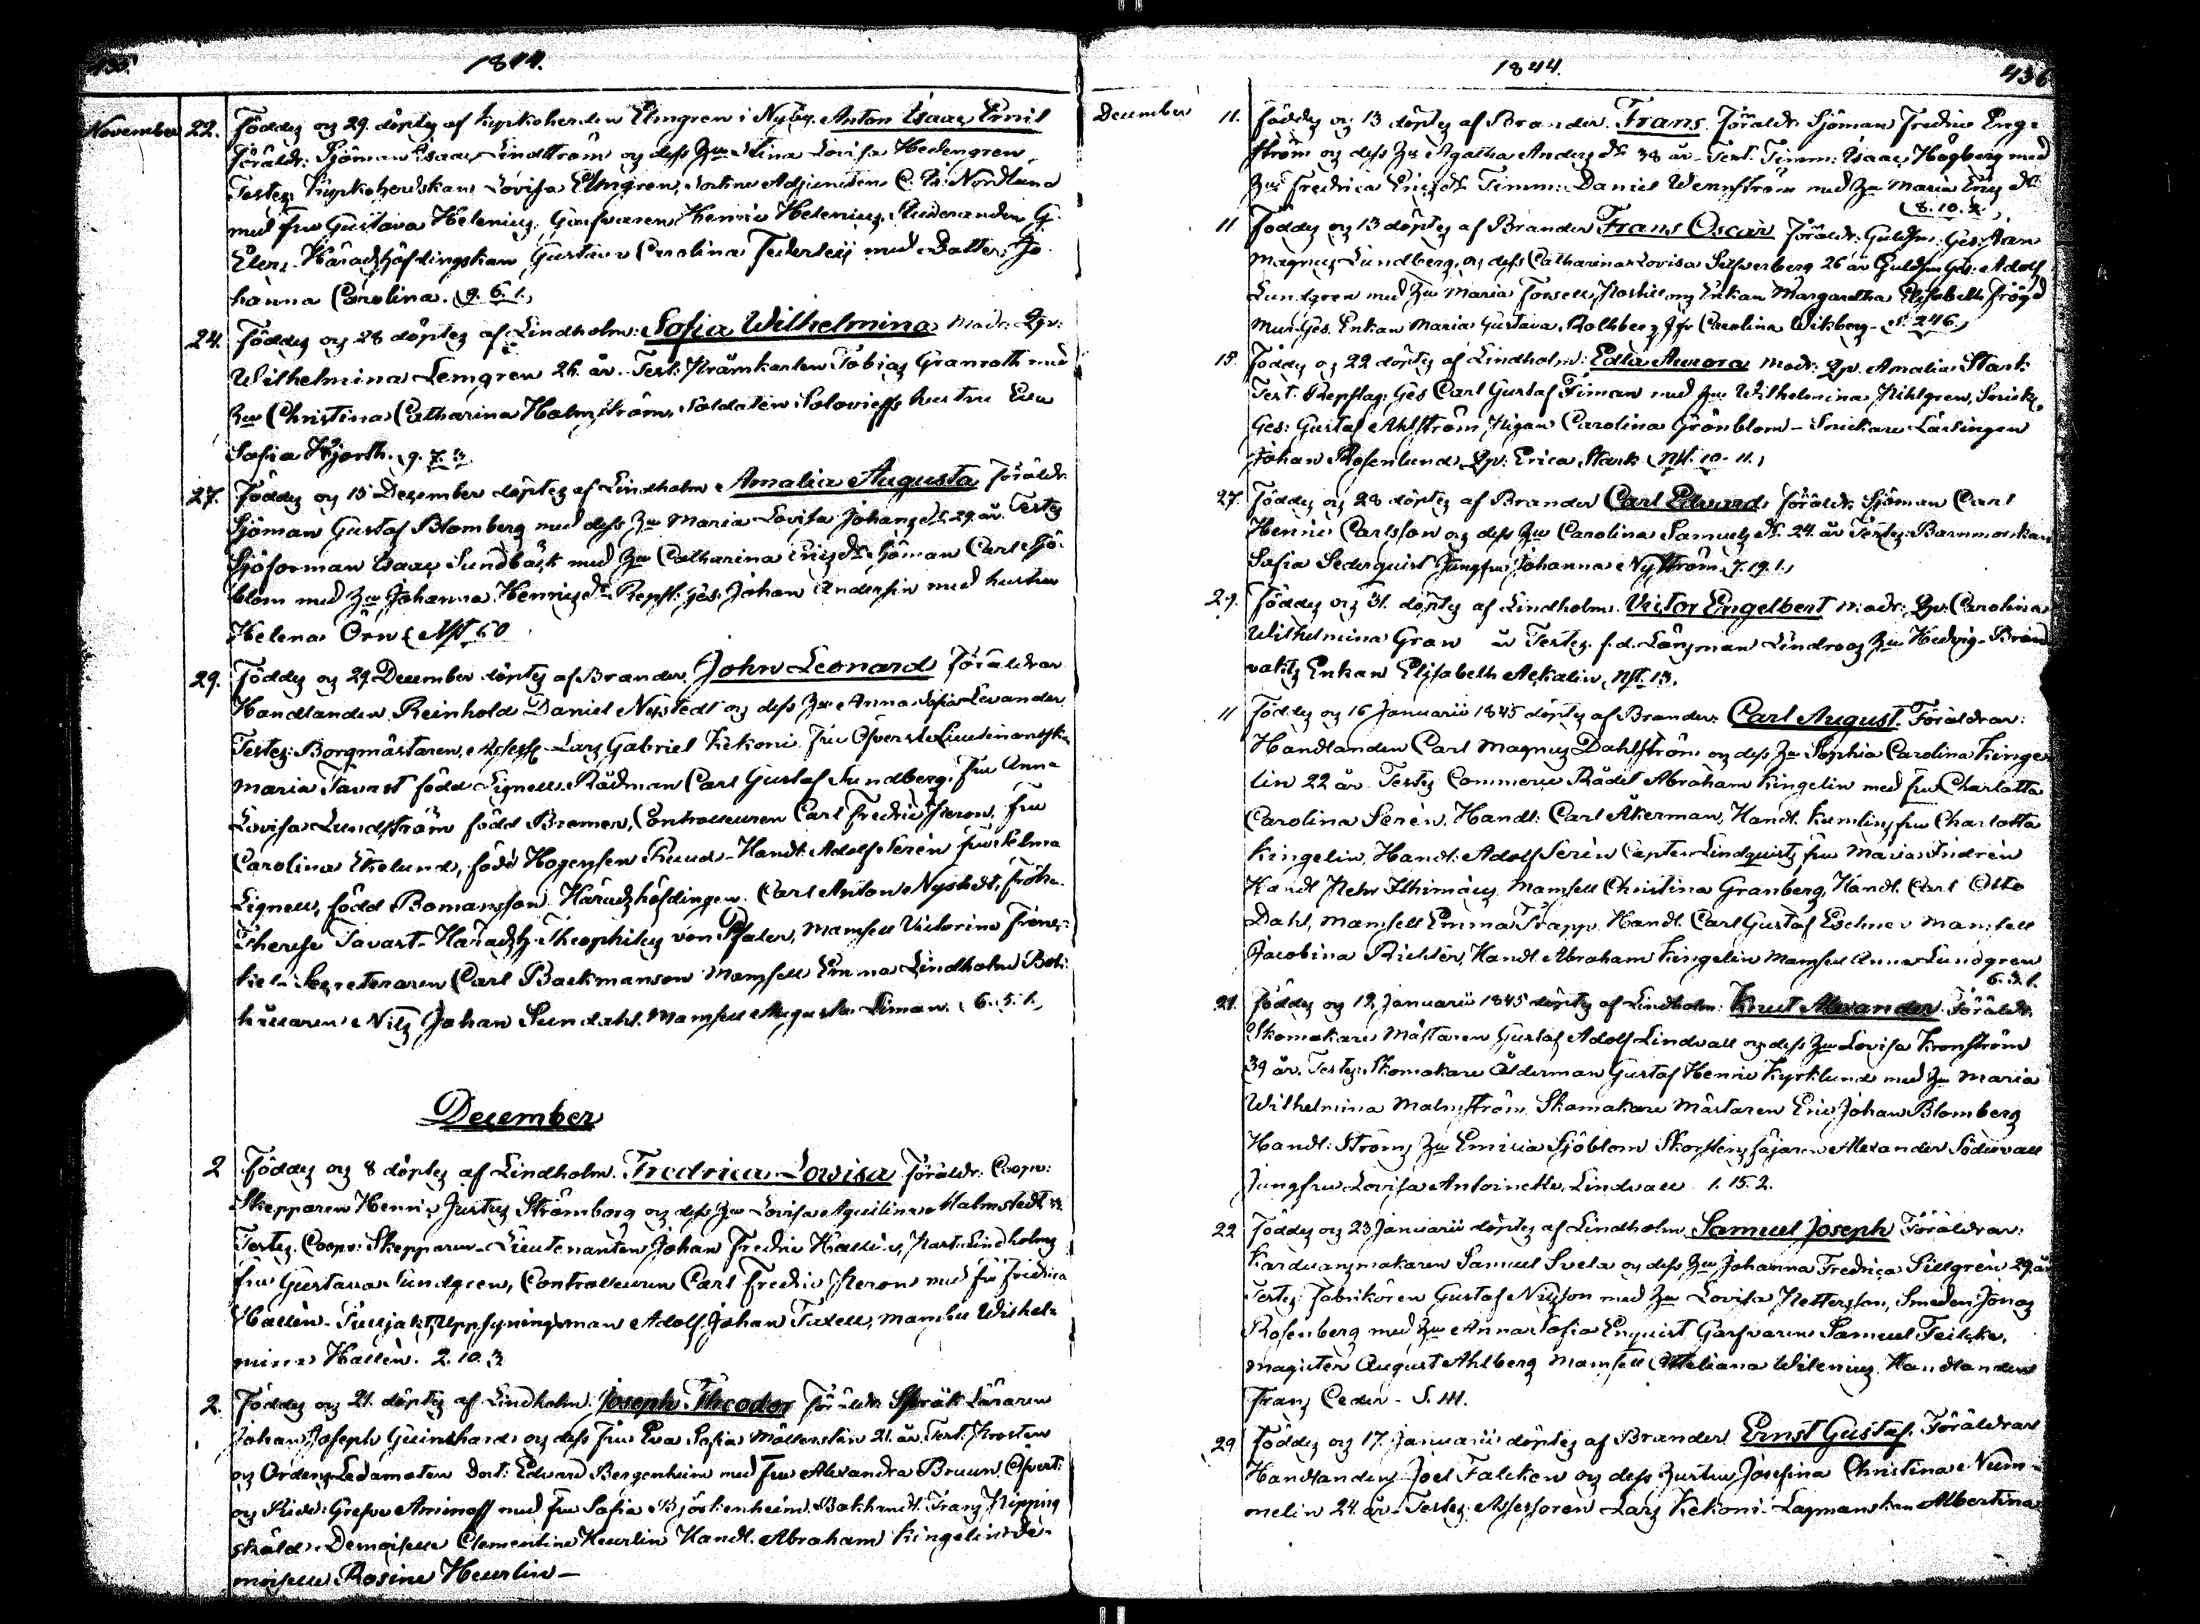 435.
1844.
November 22. Föddes og 29. döptes af Kyrkoherden Elmgren i Nyby. Anton Isaac Emil
Föräldr: Sjöman Isaac Lindström og dess Hu Stina Lovisa Hedengren.
Testes: Kyrkoherdskan Lovisa Elmgren, Adjuncten C. Nordlund
med fru Gustava Helenius, Garfvaren Henric Helenius, Studeranden G.
Elers. Häradshöfdingskan Gustava Carolina Federley med Dotter Jo-
hanna Carolina. 9. 6. 1.
24. Föddes og 28 döptes af Lindholm: Sofia Wilhelmina Modr: Qp:
Wilhelmina Lemgren 26 år. Test: Tobias Granroth med
Hu Christina Catharina Holmström, Soldaten Solovieffs hustru Eva
Sofia Hjorth. 9. 7. 3.
27. Föddes og 15 December döptes af Lindholm Amalia Augusta Föräldr:
Sjöman Gustaf Blomberg med dess Hu Maria Lovisa Johansdr. 29 år. Testes
Sjöforman Isaac Sundbäck med Hu Catharina Ericsdr. Sjöman Carl Sjö-
blom med Hu Johanna Henricsdr. Repsl: Ges: Johan Andersin med hustru
Helena Örn Nst 60
29. Föddes og 29 December döptes af Brander, John Leonard Föräldrar
Handlanden Reinhold Daniel Nystedt og dess Hu Anna Sofia Levander.
Testes: Borgmästaren, Assess: Lars Gabriel Kekoni. Fru Öfverste Lieutinantskan
Maria Tavast född Lignell. Rådman Carl Gustaf Sundberg. Fru Anna
Lovisa Lundström född Bremer, Controlleuren Carl Fredric Heron, fru
Carolina Ekelund, född Hogensen Ruud. Handl: Adolf Serén fru Selma
Lignell, född Bomansson. Häradshöfdingen Carl Anton Nystedt, fröken
Therese Tavast. Häradsh. Theophilus von Pfaler, Mamsell Victorine Frenc-
kel. Secreteraren Carl Backmanson Mamsell Emma Lindholm Bok-
hållaren Nils Johan Sundahl. Mamsell Augusta Liman. 6. 5. 1.
December
2 Föddes og 8 döptes af Lindholm. Fredrica Lovisa Föräldr: Coopv:
Skepparen Henric Justus Strömborg og dess Hu Lovisa Aquilina Malmstedt
Testes. Coopv: Skepparen Lieutenanten Johan Fredric Hallén, Lindholms
fru Gustava Sundgren, Controlleuren Carl Fredric Heron med fru Fredrica
Hallén. Uppsyningsman Adolf Johan Tuxell, Mamsell Wilhel-
mina Hallén. 2. 10. 3.
2. Föddes og 21. döptes af Lindholm. Joseph Theodor Föräldr: Språk Läraren
Johan Joseph Guinchard og dess fru Eva Sofia Möllerstén 21 år. Test: Prosten
og Ordens Ledamoten Doct: Edvard Bergenheim med fru Alexandra Bruun Öfverst:
og Ridd: Grefve Aminoff med fru Sofia Björkenheim. Bokhandl: Frans Kipping
sköld. Demoiselle Clementine Heurlin Handl. Abraham Kingelin De-
moiselle Rosine Heurlin
1844.
436
December 11. Föddes og 13 döptes af Brander. Frans. Föräldr: Sjöman Fredric Eng-
ström og dess Hu Agatha Andersdr. 38 år. Test. Timm: Isaac Högberg med
Hu Fredrica Ericsdr. Timm: Daniel Wennström med Hu Maria Ericsdr.
8. 10. 2.
11 Föddes og 13 döptes af Brander Frans Oscar Föräldr: Guldsm: Ges: Aron
Magnus Lundberg, og dess Catharina Lovisa Silfverberg 26 år Guldsm Ges: Adolf
Lundgren med Hu Maria Forsell, Enkan Margaretha Elisabeth Frögd
Mur. Ges. Enkan Maria Gustava Rollberg Jfr Carolina Wikberg. S. 246.
15. Föddes og 22 döptes af Lindholm: Edla Aurora Modr: Qp. Amalia Stark:
Test. Repslag. Ges Carl Gustaf Timan med Hu Wilhelmina Kihlgren, Snick.
Ges: Gustaf Ahlström, Pigan Carolina Grönblom. Snickare Lärlingen
Johan Rosenlund, Qp: Erica Stark. Nst. 10. 11.
27. Föddes og 28 döptes af Brander Carl Edvard Föräldr: Sjöman Carl
Henric Carlsson og dess Hu Carolina Samuelsdr. 24 år Testes: Barnmorskan
Sofia Sederquist Jungfru Johanna Nyström. 7. 19. 1.
29. Föddes og 31. döptes af Lindholm. Victor Engelbert Modr: Qp: Carolina
Wilhelmina Gran år Testes. f.d. Länsman Lindroos Hu Hedvig. Brand
vakts Enkan Elisabeth Ackalin. Nst. 13.
11 Föddes og 16 Januarii 1845 döptes af Brander. Carl August. Föräldrar:
Handlanden Carl Magnus Dahlström og dess Hu Sophia Carolina Kinge-
lin 22 år. Testes Commerce Rådet Abraham Kingelin med fru Charlotta
Carolina Serén. Handl: Carl Åkerman, Handl. Kumlins fru Charlotta
Kingelin, Handl. Adolf Serén Capten Lindquists fru Maria Andrén
Handl Pehr Thimæus Mamsell Christina Granberg, Handl. Carl Otto
Dahl, Mamsell Emma Trapp. Handl. Carl Gustaf Eschner Mamsell
Jacobina Richter, Handl. Abraham Kingelin Mamsell Anna Lundgren
6. 3. 1.
21. Föddes og 12. Januarii 1845 döptes af Lindholm: Knut Alexander. Föräldr.
Skomakare Mästaren Gustaf Adolf Lindvall og dess Hu Lovisa Kronström
39 år. Testes: Skomakare Ålderman Gustaf Henric Kyrklund med Hu Maria
Wilhelmina Malmström Skomakare Mästaren Eric Johan Blomberg
Handl: Ströms Hu Emilia Sjöblom Skorstensfejaren Alexander Södervall
Jungfru Lovisa Antoinette Lindvall 1. 15. 2.
22 Föddes og 23 Januarii döptes af Lindholm Samuel Joseph Föräldrar:
Karduansmakaren Samuel Svela og dess Hu Johanna Fredrica Sillgrén 29 år
Testes: Fabrikören Gustaf Nilsson med Hu Lovisa Pettersson, Smeden Jonas
Rosenberg med Hu Anna Sofia Enquist Garfvaren Samuel Feilcke,
Magister August Ahlberg Mamsell Wilenius Handlanden
Frans Ceder - S. 111.
29 Föddes og 17. Januarii döptes af Brander Ernst Gustaf. Föräldrar
Handlanden Joel Falcken og dess hustru Josefina Christina Num-
melin 24 år. Testes: Assessoren Lars Kekoni. Lagmanskan Albertina